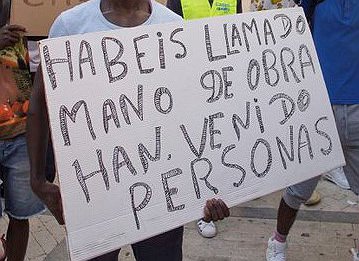 HABEIS LLAMADO
MANO DE OBRA
HAN VENIDO
PERSONAS